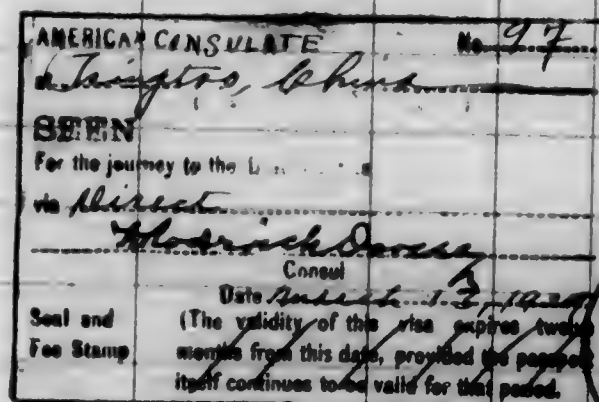 AMERICAN CONSULATE No. 97
Tsingtao, China
SEEN
For the journey to the
via Direct
Consul
Date August 13, 19
Seal and (The validity of this visa expires twelve
Fee Stamp months from this date, provided the passport
itself continues to be valid for that period.